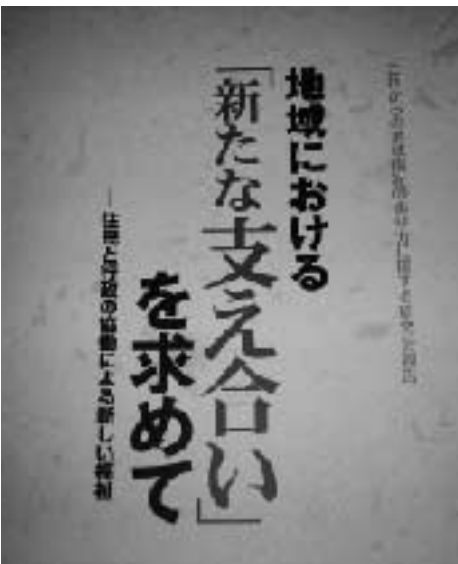 地域における
「新たな支え合い」
を求めて
―住民と行政の協働による新しい福祉